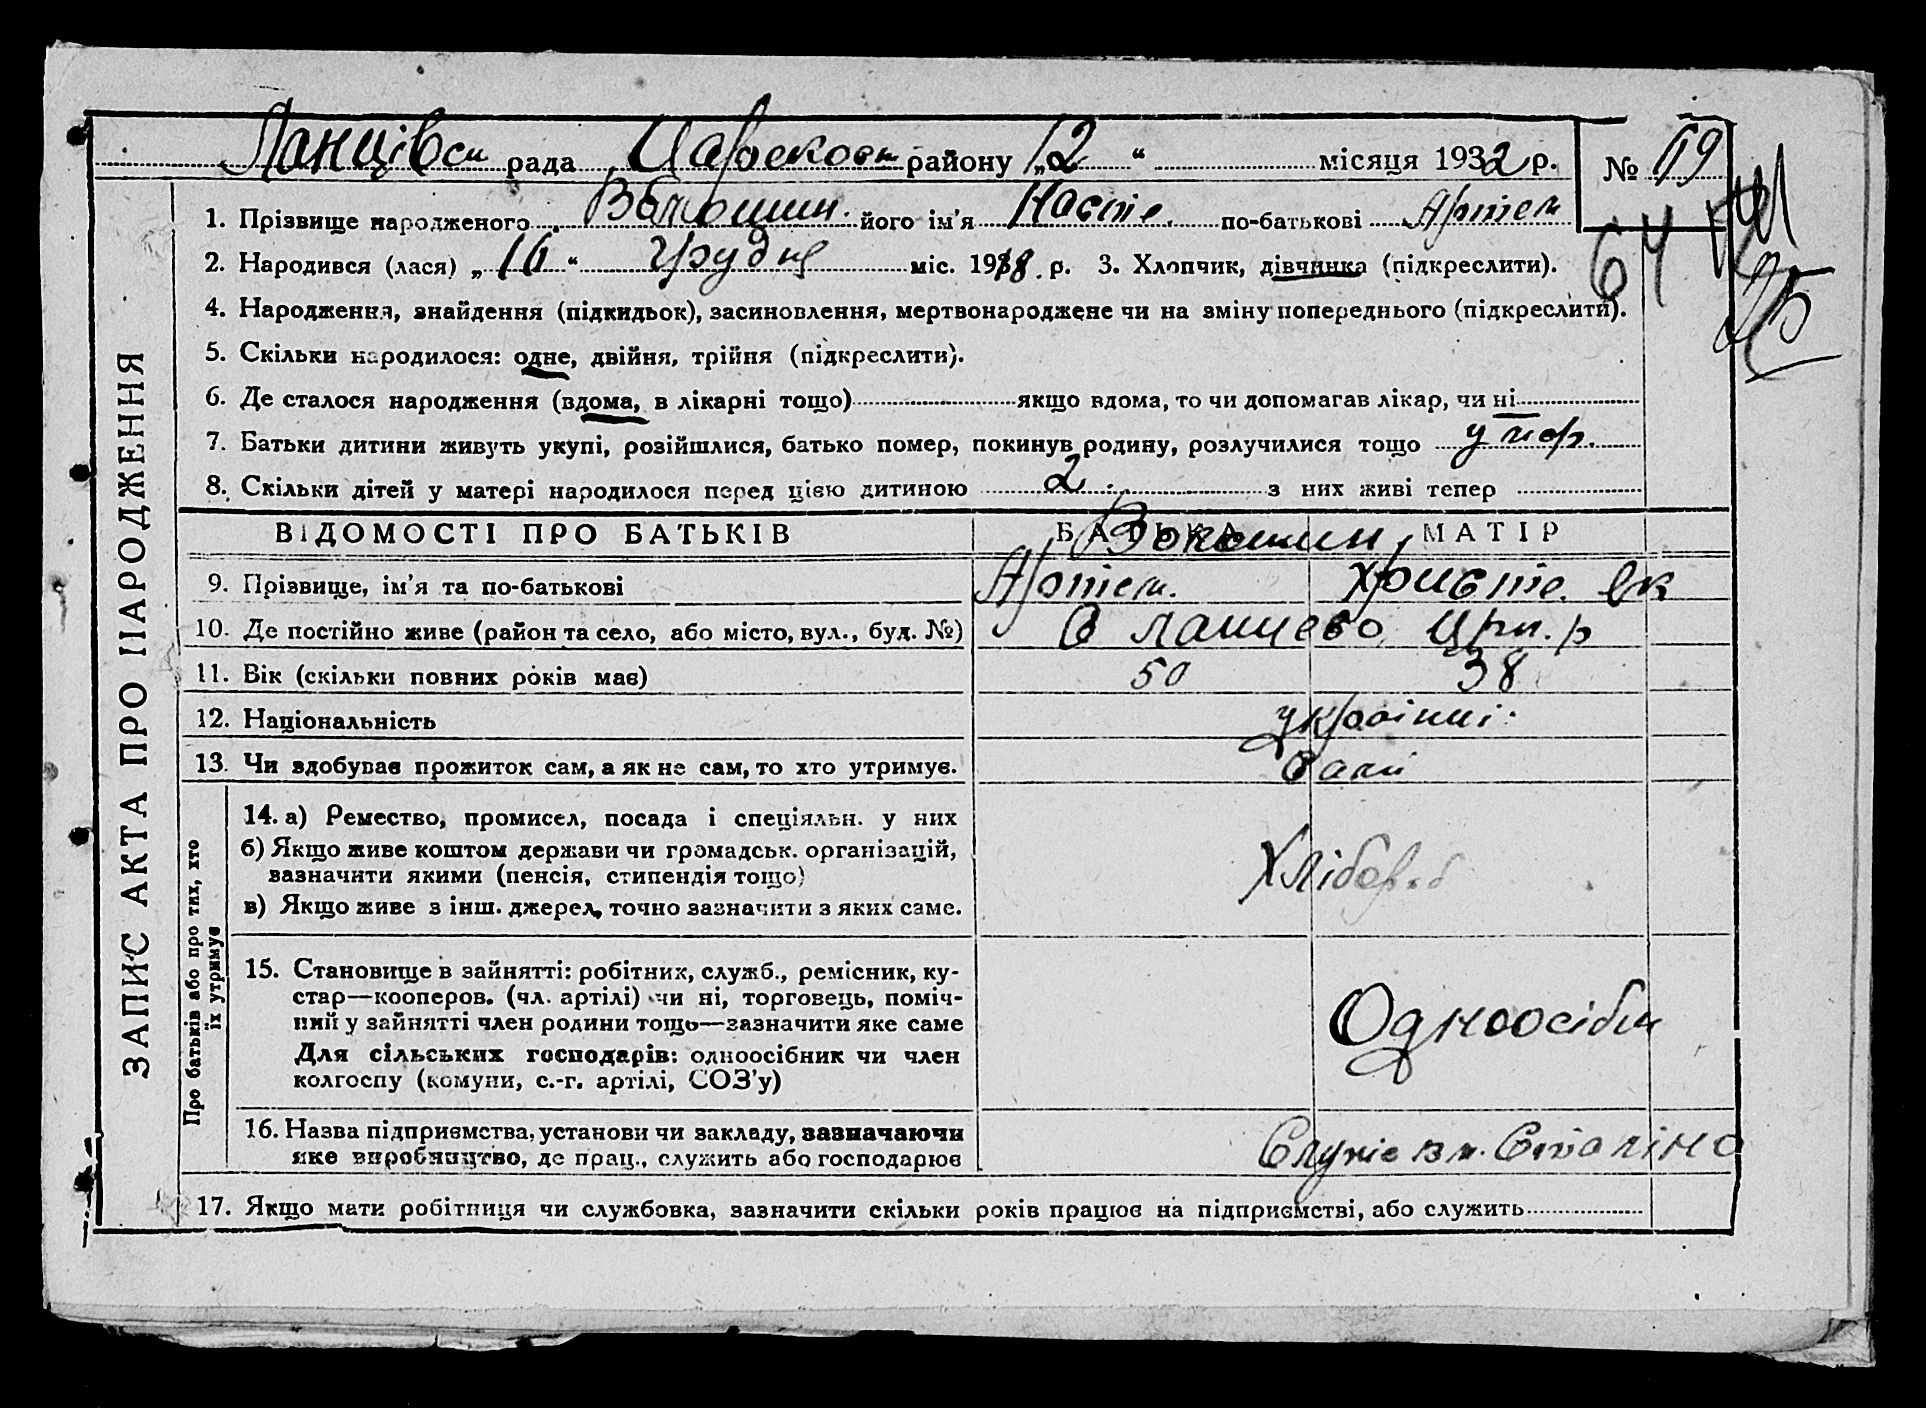 Ланцівськ рада Царекост району „12“ місяця 1932 р. № 19
1. Прізвище народженого Волошин. його ім'я Насте. по-батькові Артем
64
25
2. Народився (лася) „16“ грудня міс. 1918. р. 3. Хлопчик, дівчинка (підкреслити).
4. Народження, знайдення (підкидьок), засиновлення, мертвонароджене чи на зміну попереднього (підкреслити).
5. Скільки народилося: одне, двійня, трійня (підкреслити).
6. Де сталося народження (вдома, в лікарні тощо) якщо вдома, то чи допомагав лікар, чи ні
7. Батьки дитини живуть укупі, розійшлися, батько помер, покинув родину, розлучилися тощо умер.
8. Скільки дітей у матері народилося перед цією дитиною 2. з них живі тепер
ВІДОМОСТІ ПРО БАТЬКІВ БАТЬКА МАТІР
Волошин
9. Прізвище, ім'я та по-батькові Артем. Христе.
10. Де постійно живе (район та село, або місто, вул., буд. №) с Ланцево Црк. р
11. Вік (скільки повних років має) 50 38
12. Національність українці.
13. Чи здобував прожиток сам, а як не сам, то хто утримує. Сами
ЗАПИС АКТА ПРО НАРОДЖЕННЯ
Про батьків або про тих, хто
їх утримує
14. а) Ремество, промисел, посада і спеціяльн. у них
б) Якщо живе коштом держави чи громадськ. організацій,
зазначити якими (пенсія, стипендія тощо)
в) Якщо живе з інш. джерел, точно зазначити з яких саме.
Хлібороб
15. Становище в зайнятті: робітник, служб., ремісник, ку-
стар—кооперов. (чл. артілі) чи ні, торговець, поміч-
ний у зайнятті член родини тощо—зазначити яке саме
Для сільських господарів: одноосібник чи член
колгоспу (комуни, с.-г. артілі, СОЗ'у)
Одноосібн
16. Назва підприємства, установи чи закладу, зазначаючи
яке виробництво, де прац., служить або господарює
Служе в м. Сталіно
17. Якщо мати робітниця чи службовка, зазначити скільки років працює на підприємстві, або служить